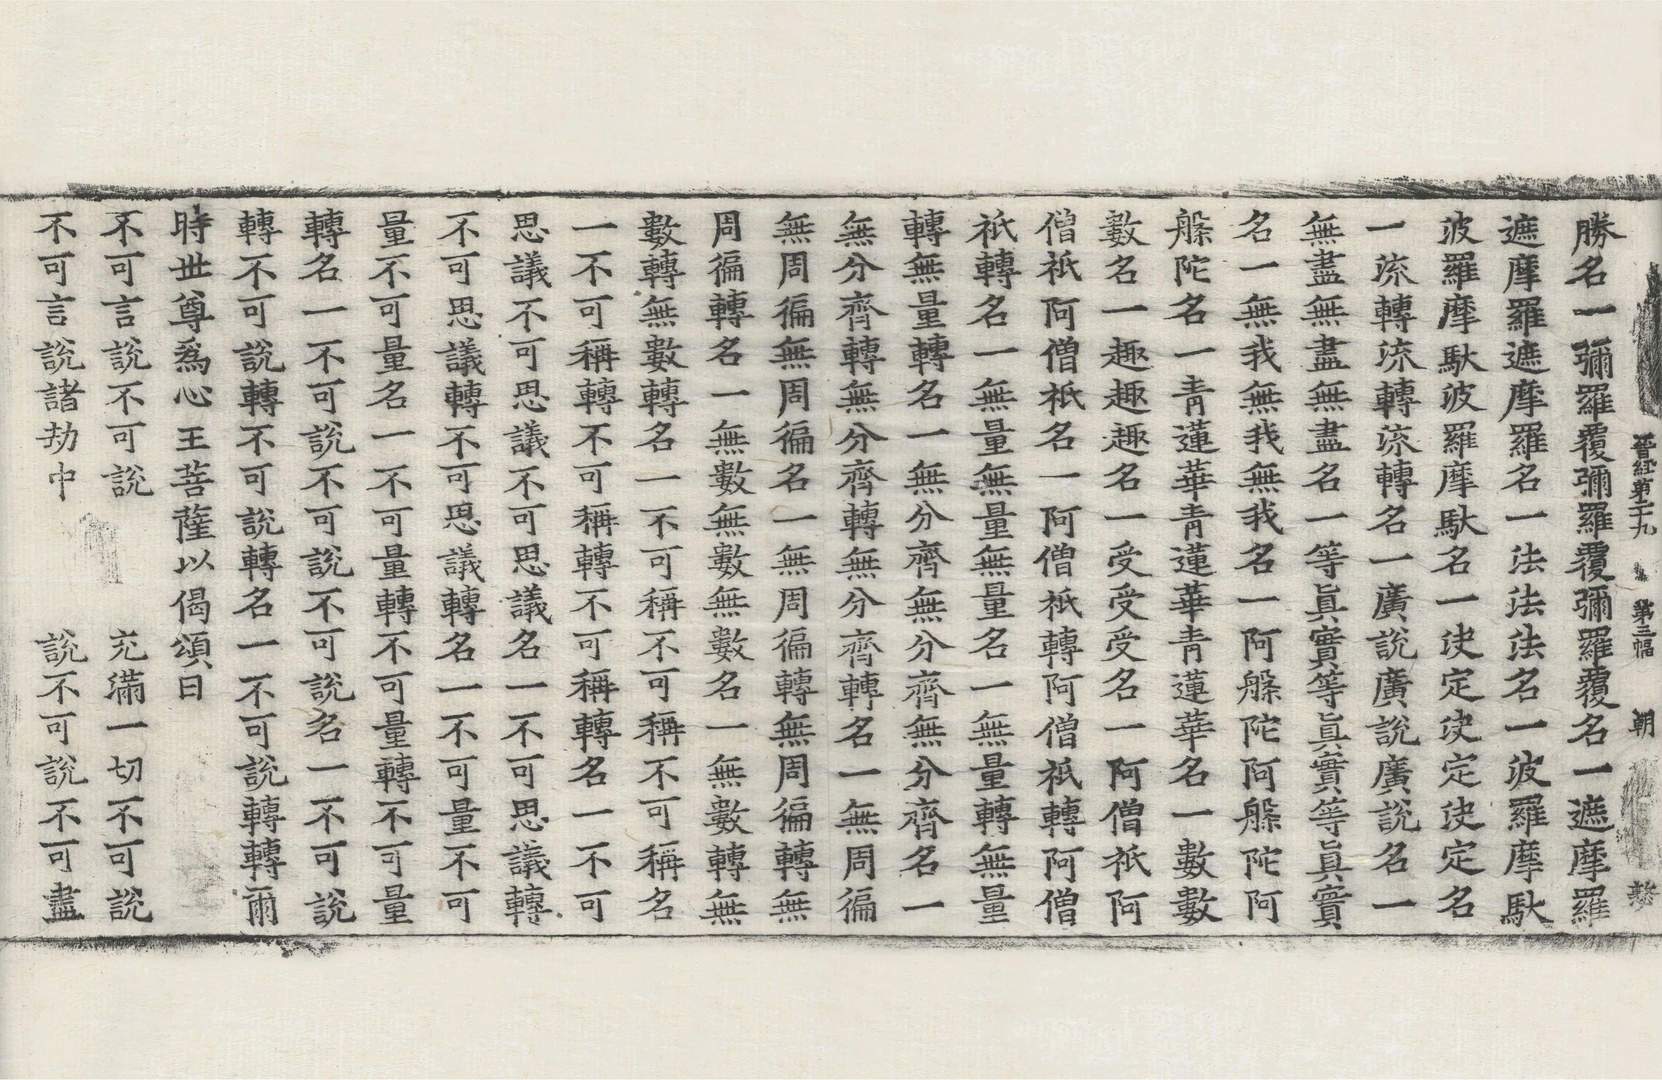 晉經第二十九 第三幅 朝
勝名一彌羅覆彌羅覆彌羅覆名一遮摩羅
遮摩羅遮摩羅名一法法法名一波羅摩馱
波羅摩馱波羅摩馱名一决定决定决定名
一流轉流轉流轉名一廣說廣說廣說名一
無盡無盡無盡名一等眞實等眞實等眞實
名一無我無我無我名一阿槃陀阿槃陀阿
槃陀名一青蓮華青蓮華青蓮華名一數數
數名一趣趣趣名一受受受名一阿僧祇阿
僧祇阿僧祇名一阿僧祇轉阿僧祇轉阿僧
祇轉名一無量無量無量名一無量轉無量
轉無量轉名一無分齊無分齊無分齊名一
無分齊轉無分齊轉無分齊轉名一無周徧
無周徧無周徧名一無周徧轉無周徧轉無
周徧轉名一無數無數無數名一無數轉無
數轉無數轉名一不可稱不可稱不可稱名
一不可稱轉不可稱轉不可稱轉名一不可
思議不可思議不可思議名一不可思議轉
不可思議轉不可思議轉名一不可量不可
量不可量名一不可量轉不可量轉不可量
轉名一不可說不可說不可說名一不可說
轉不可說轉不可說轉名一不可說轉轉爾
時世尊爲心王菩薩以偈頌曰
不可言說不可說 充滿一切不可說
不可言說諸劫中 說不可說不可盡